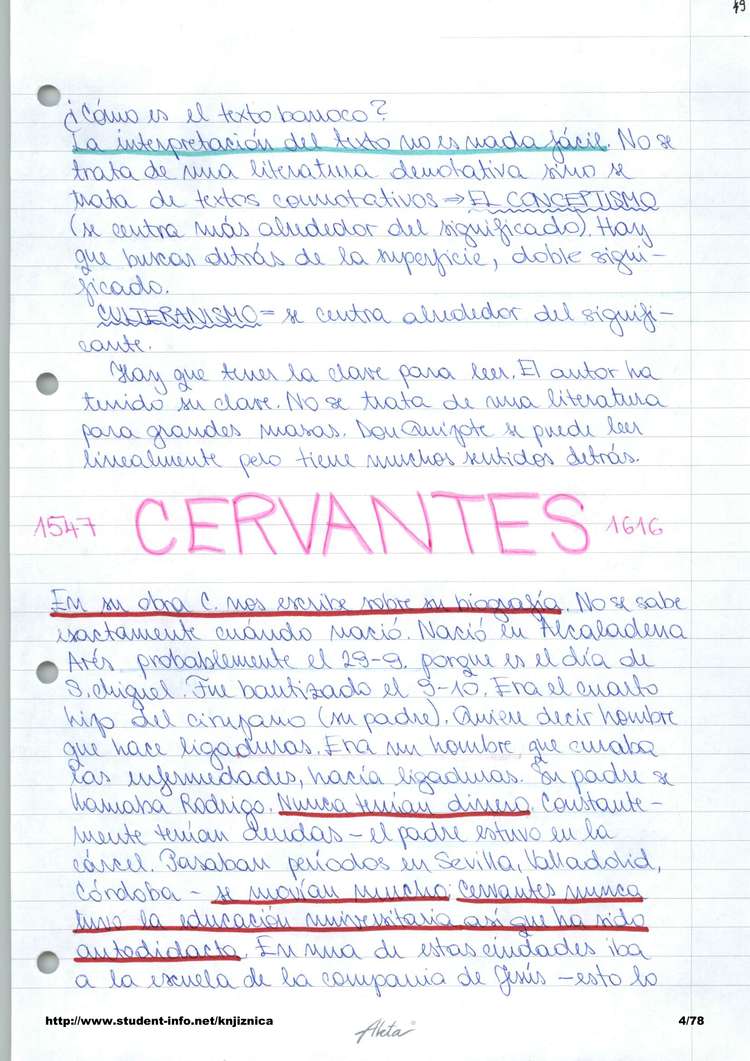 49
¿Cómo es el texto barroco?
La interpretación del texto no es nada fácil. No se
trata de una literatura denotativa sino se
trata de textos connotativos ⇒ EL CONCEPTISMO
(se centra más alrededor del significado). Hay
que buscar detrás de la superficie, doble signi-
ficado.
CULTERANISMO = se centra alrededor del signifi-
cante.
Hay que tener la clave para leer. El autor ha
tenido su clave. No se trata de una literatura
para grandes masas. Don Quijote se puede leer
linealmente pero tiene muchos sentidos detrás.
1547 CERVANTES 1616
En su obra C. nos escribe sobre su biografía. No se sabe
exactamente cuándo nació. Nació en Alcaladena
Arés, probablemente el 29-9, porque es el día de
S. Miguel. Fue bautizado el 9-10. Era el cuarto
hijo del cirujano (su padre). Quiere decir hombre
que hace ligaduras. Era un hombre que curaba
las enfermedades, hacía ligaduras. Su padre se
llamaba Rodrigo. Nunca tenían dinero. Constante-
mente tenían deudas – el padre estuvo en la
cárcel. Pasaban períodos en Sevilla, Valladolid,
Córdoba – se movían mucho. Cervantes nunca
tuvo la educación universitaria así que ha sido
autodidacta. En una de estas ciudades iba
a la escuela de la compania de Jesús – esto lo
http://www.student-info.net/knjiznica
Akta
4/78